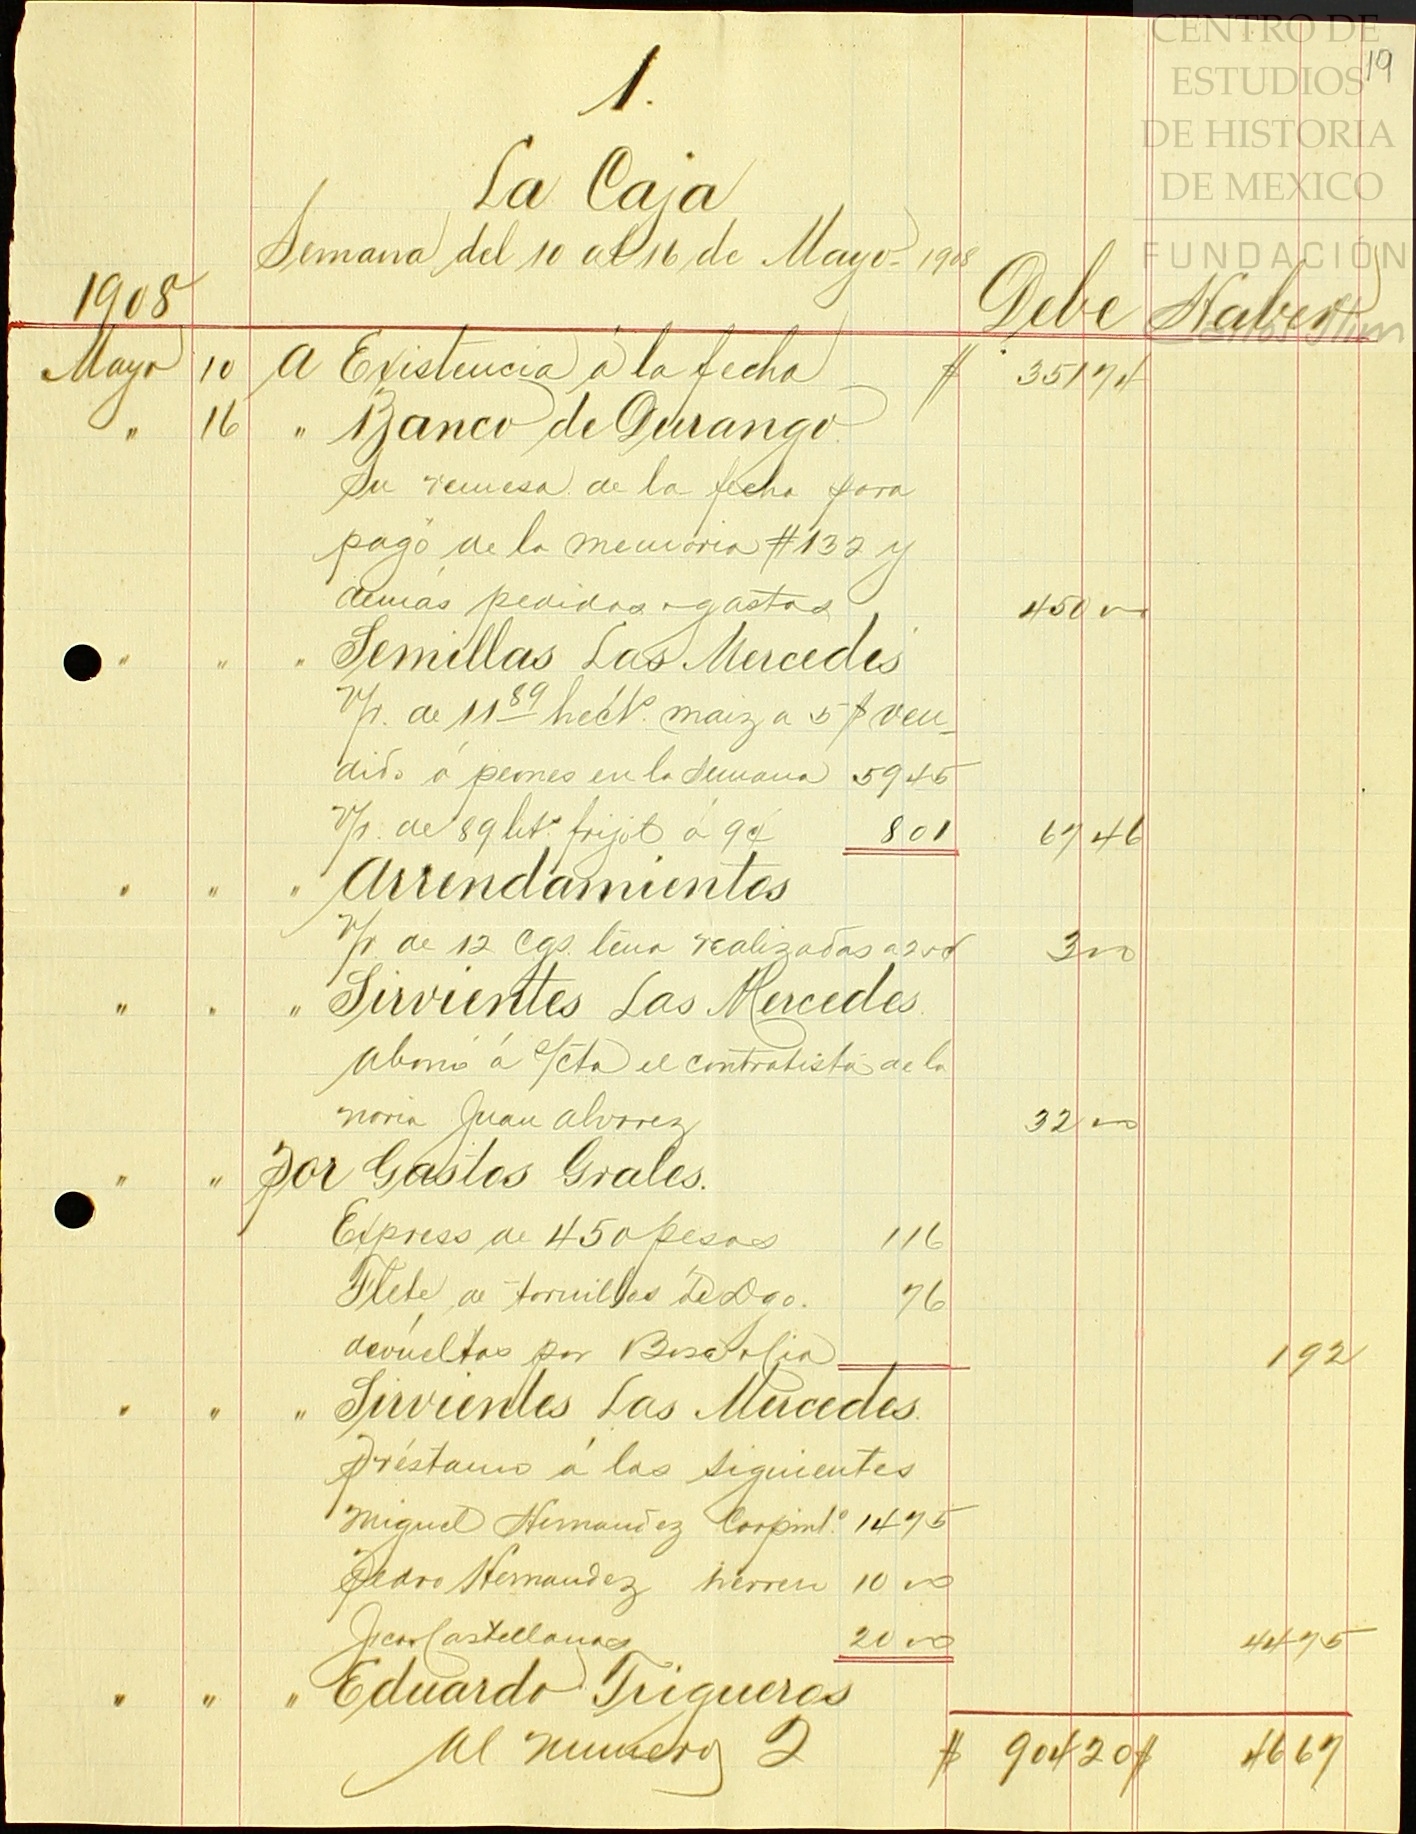 CENTRO DE
ESTUDIOS
DE HISTORIA
DE MEXICO
FUNDACIÓN
19
1.
La Caja
Semana del 10 al 16 de Mayo 1908
1908 Debe Haber
Mayo 10 A Existencia á la fecha $ 351 74
" 16 " Banco de Durango.
Su remesa de la fecha para
pago de la memoria #132 y
demás pedidos y gastos 450 00
" " " Semillas Las Mercedes
V/r. de 11 89 hect.s maiz a 5 $ ven-
dido á peones en la semana 59 45
V/r. de 89 lit.s frijol á 9¢ 8 01 67 46
" " " Arrendamientos
V/r. de 12 cgs. leña realizadas a 3 00
" " " Sirvientes Las Mercedes.
Abonó á c/cta el contratista de la
noria Juan Alvarez 32 00
" " Por Gastos Grales.
Express de 450 pesos 1 16
Flete de tornillos de Dgo. 76
devueltos por 1 92
" " " Sirvientes Las Mercedes.
Préstamo á los siguientes
Miguel Hernandez Carpint.o 14 75
Pedro Hernandez herrero 10 00
Castellanos 20 00 44 75
" " " Eduardo Trigueros
Al numero 2 $ 904 20 $ 46 67